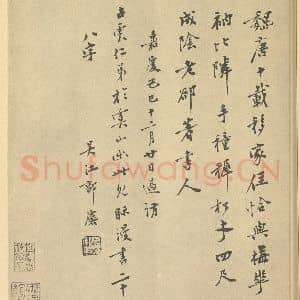 魏唐十載移家住恰與梅華
衲比隣手種穉松才四尺
成陰老卻著書人
嘉慶己巳十二月廿日過訪
雲仁弟於寓山出此見眎漫書二十
八字
吳江郭麐
Shufawang.CN